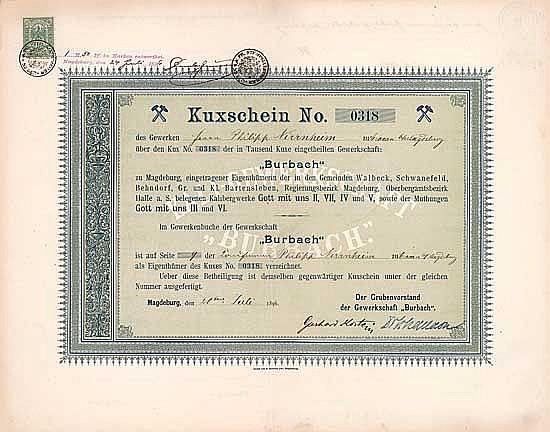 1 M. 50 Pf. in Marken entwertet.
Magdeburg, den 24 Juli
Kuxschein No. 0318
des Gewerken Herrn Philipp Nirrnheim
über den Kux No. 0318 der in Tausend Kuxe eingetheilten Gewerkschaft:
„Burbach"
zu Magdeburg, eingetragener Eigenthümerin der in den Gemeinden Walbeck, Schwanefeld,
Behndorf, Gr. und Kl. Bartensleben, Regierungsbezirk Magdeburg, Oberbergamtsbezirk
Halle a. S. belegenen Kalibergwerke Gott mit uns II, VII, IV und V, sowie der Muthungen
Gott mit uns III und VI.
GEWERKSCHAFT
„BURBACH."
Im Gewerkenbuche der Gewerkschaft
„Burbach"
ist auf Seite der Philipp Nirrnheim
als Eigenthümer des Kuxes No. 0318 verzeichnet.
Ueber diese Betheiligung ist demselben gegenwärtiger Kuxschein unter der gleichen
Nummer ausgefertigt.
Magdeburg, den Juli 189
Der Grubenvorstand
der Gewerkschaft „Burbach".